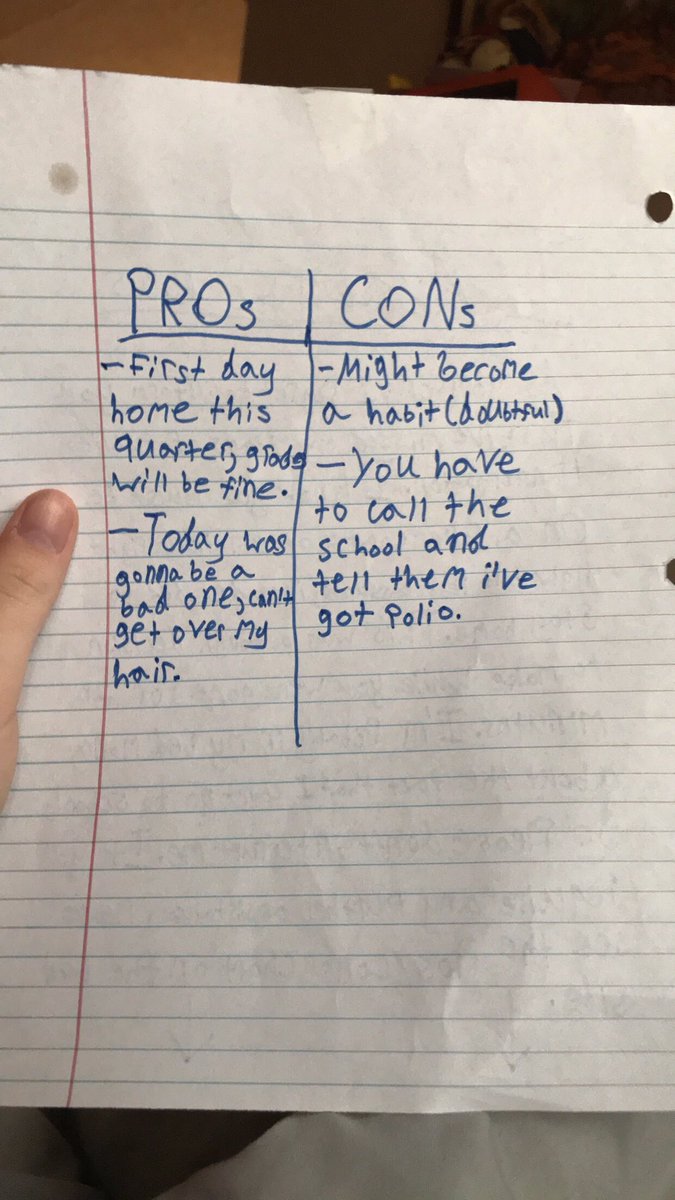 PROs
-First day
home this
quarter, grades
will be fine.
-Today was
gonna be a
bad one, can't
get over my
hair.
CONs
-Might become
a habit (doubtful)
-You have
to call the
school and
tell them i've
got polio.